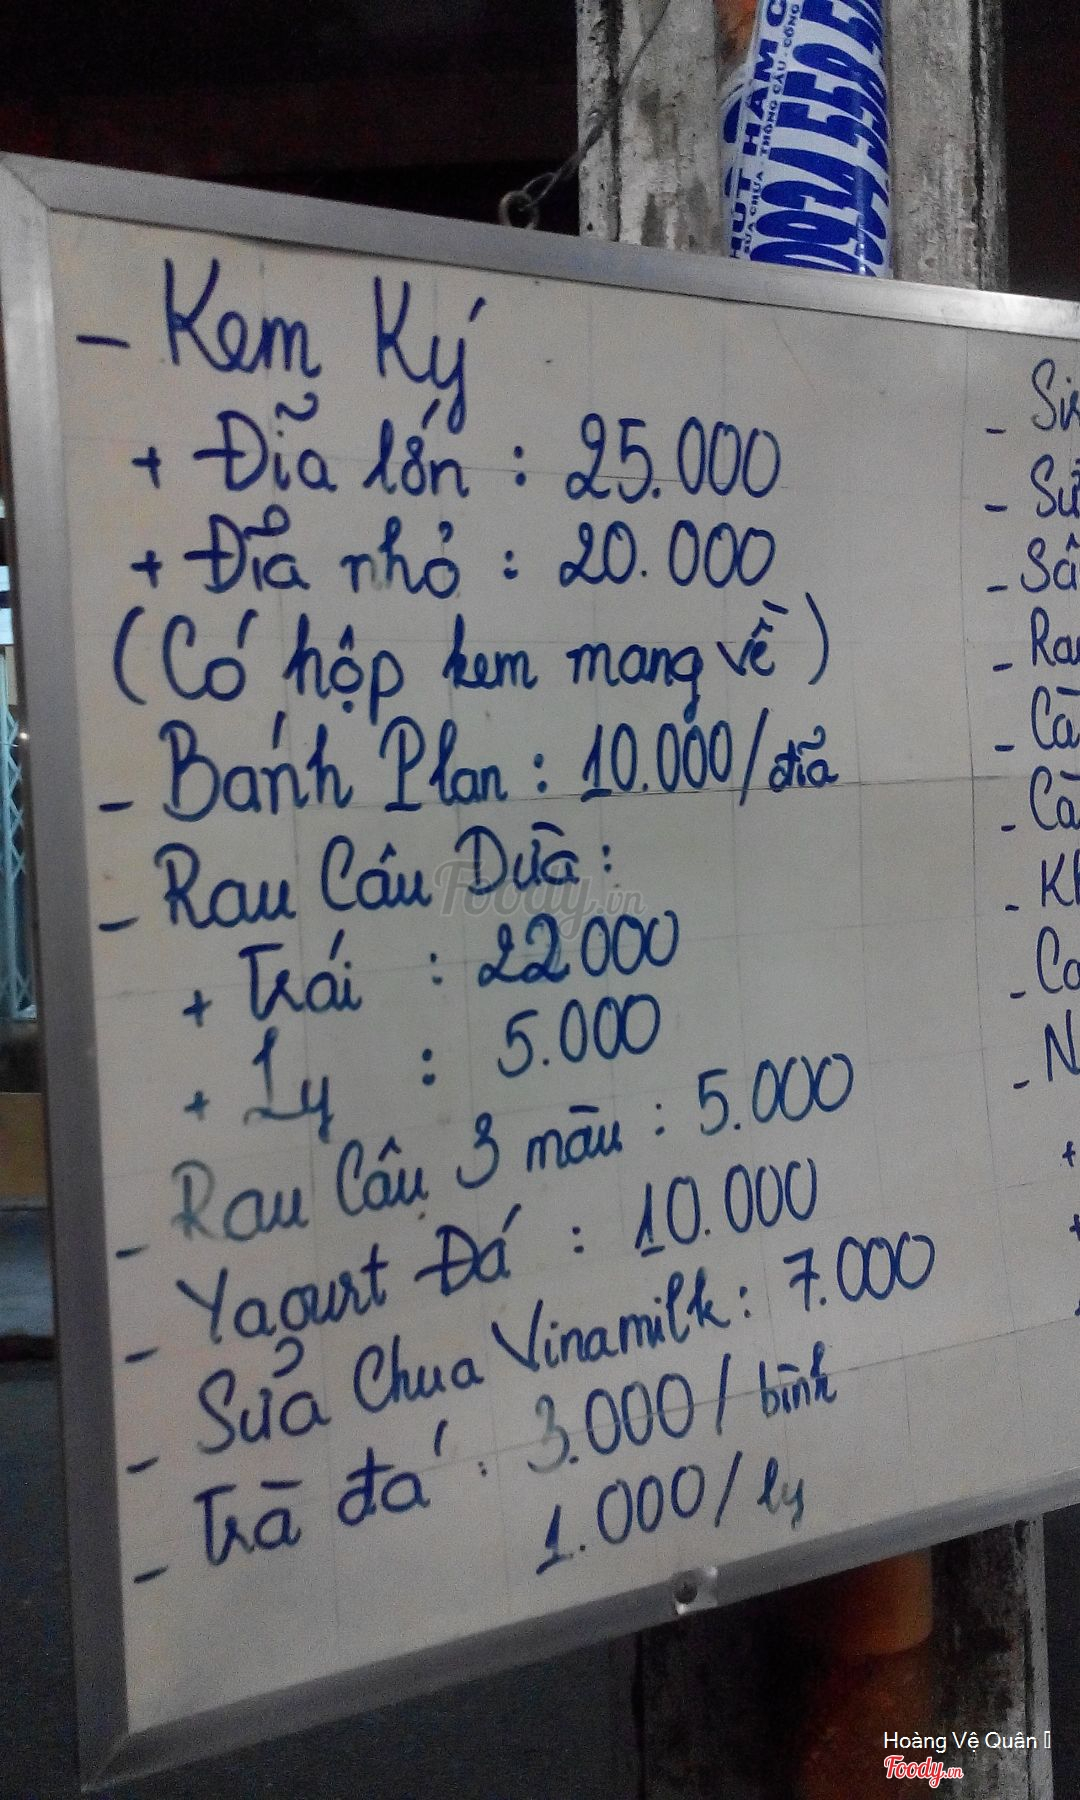 HÚT HẦM C
SỬA CHỮA - THÔNG CẦU - CỐNG
0934 558
- Kem Ký
+ Đĩa lớn : 25.000
+ Đĩa nhỏ : 20.000
(Có hộp kem mang về)
- Bánh Plan : 10.000/đĩa
- Rau Câu Dừa :
+ Trái : 22.000
+ Ly : 5.000
- Rau Câu 3 màu : 5.000
- Yaourt Đá : 10.000
- Sửa Chua Vinamilk : 7.000
- Trà đá : 3.000/bình
1.000/ly
- Sâ
- Ra
- Cà
- Cà
- Kh
- Co
- N
+
Foody.vn
Hoàng Vệ Quân
Foody.vn